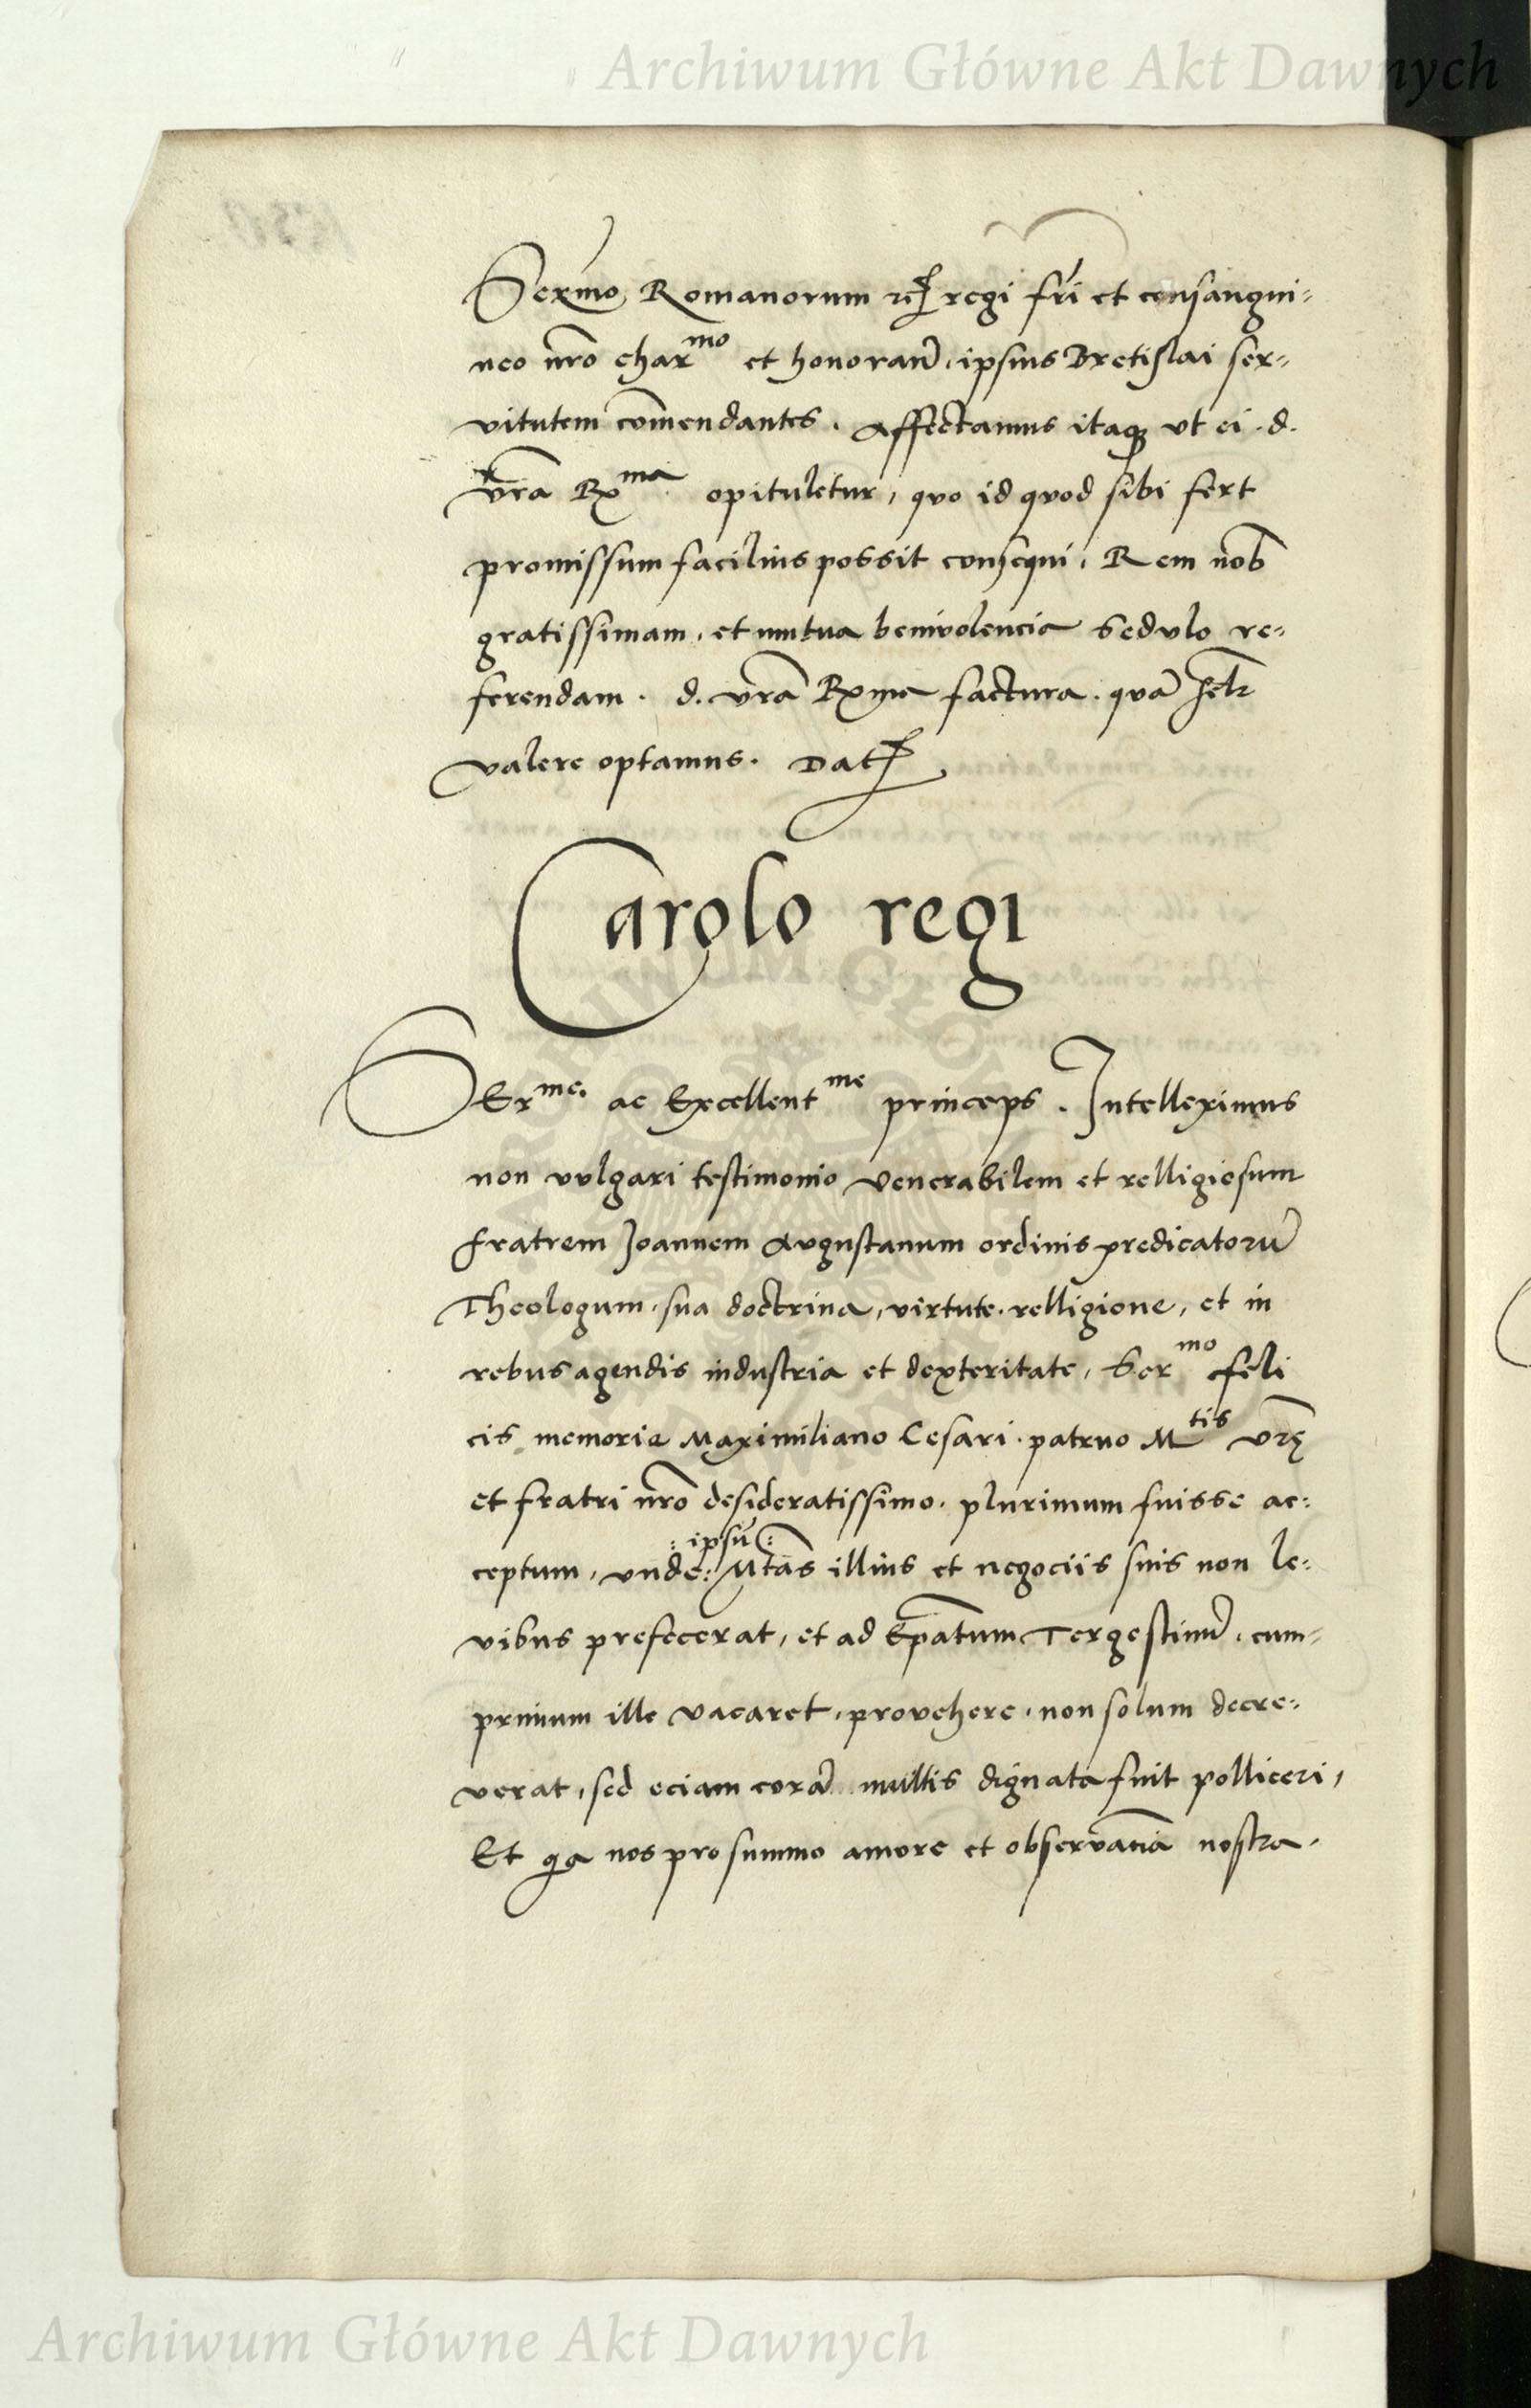 Archiwum Główne Akt Dawnych
Serx̄mo Romanorum etc regi fr̄i et consangui-
neo nr̄o charmo et honoran̄. ipsius Bretislai ser-
vitutem com̄endantes. Affectamus itaq; vt ei. d.
vr̄a Rxma opituletur, quo id quod sibi fert
promissum facilius possit consequi, Rem nob̄
gratissimam, et mutua benivolencia sedulo re-
ferendam. d. vr̄a Rxma factura. quā
valere optamus. Dat
Carolo regi
SErme. ac Excellentme princeps. Intelleximus
non vulgari testimonio venerabilem et relligiosum
fratrem Joannem Augustanum ordinis predicatorū
Theologum, sua doctrina, virtute. relligione, et in
rebus agendis industria et dexteritate, Sermo feli
cis memorie Maximiliano Cesari. patruo Mtis vr̄ę
et fratri nr̄o desideratissimo. plurimum fuisse ac-
:ipsū:
ceptum, vnde: Mtās illius et negociis suis non le-
vibus prefecerat, et ad Ep̄atum Tergestinū. cum-
primum ille vacaret, provehere, non solum decre-
verat, sed eciam corā multis dignata fuit polliceri,
Et qa nos pro summo amore et observan̄ia nostra,
Archiwum Główne Akt Dawnych